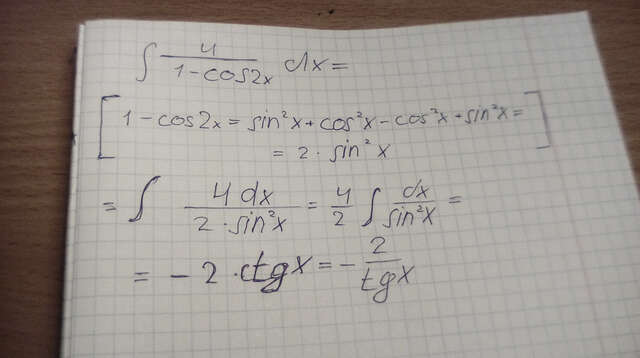 ∫ 4/(1-cos2x) dx =
[1-cos2x = sin²x + cos²x - cos²x + sin²x =
= 2 · sin²x]
= ∫ 4dx/(2·sin²x) = 4/2 ∫ dx/sin²x =
= -2 · ctgx = - 2/tgx